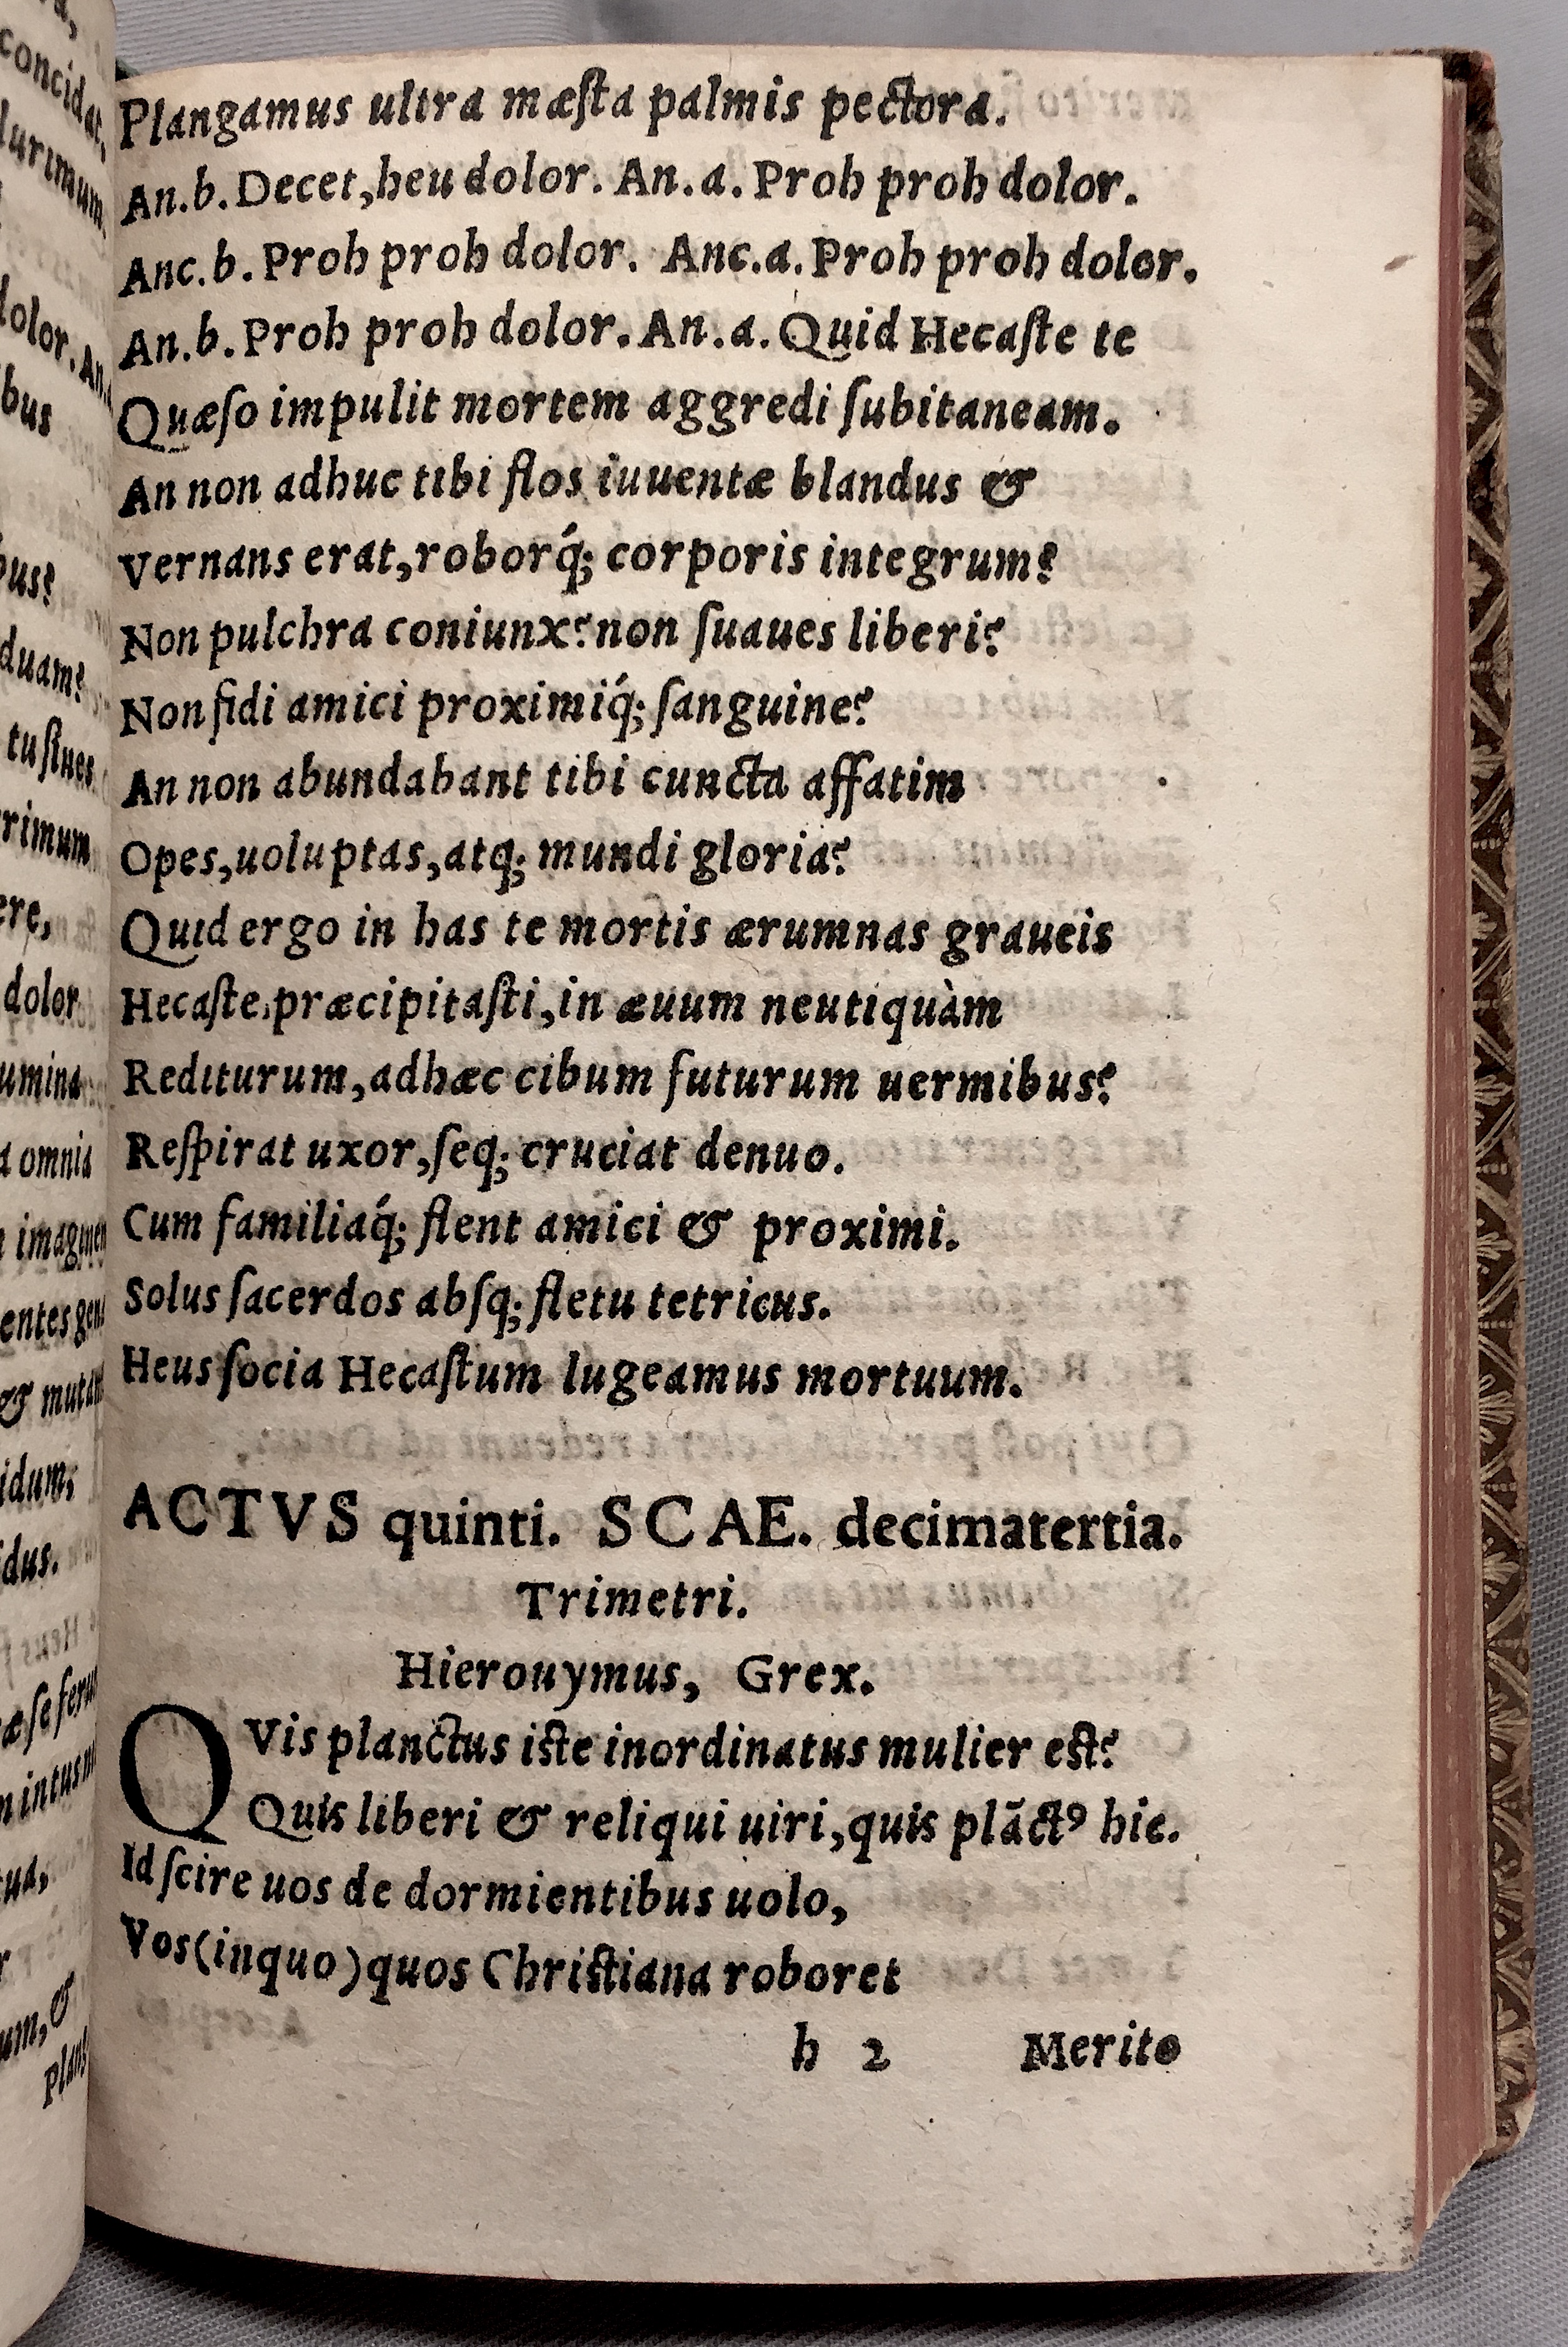 Plangamus ultra mæſta palmis pectora.
An.b. Decet, heu dolor. An.a. Proh proh dolor.
Anc.b. Proh proh dolor. Anc.a. Proh proh dolor.
An.b. Proh proh dolor. An.a. Quid Hecaſte te
Quæſo impulit mortem aggredi ſubitaneam.
An non adhuc tibi flos iuuentæ blandus &
Vernans erat, roborq́; corporis integrum?
Non pulchra coniunx? non ſuaues liberi?
Non fidi amici proximiq́; ſanguine?
An non abundabant tibi cuncta affatim
Opes, uoluptas, atq; mundi gloria?
Quid ergo in has te mortis ærumnas graueis
Hecaſte, præcipitaſti, in æuum neutiquàm
Rediturum, adhæc cibum futurum uermibus?
Reſpirat uxor, ſeq; cruciat denuo.
Cum familiaq́; flent amici & proximi.
Solus ſacerdos abſq; fletu tetricus.
Heus ſocia Hecaſtum lugeamus mortuum.
ACTVS quinti. SCAE. decimatertia.
Trimetri.
Hierouymus, Grex.
QVis planctus iſte inordinatus mulier eſt?
Quis liberi & reliqui uiri, quis plāctꝰ hic.
Id ſcire uos de dormientibus uolo,
Vos (inquo) quos Chriſtiana roboret
h 2 Merito